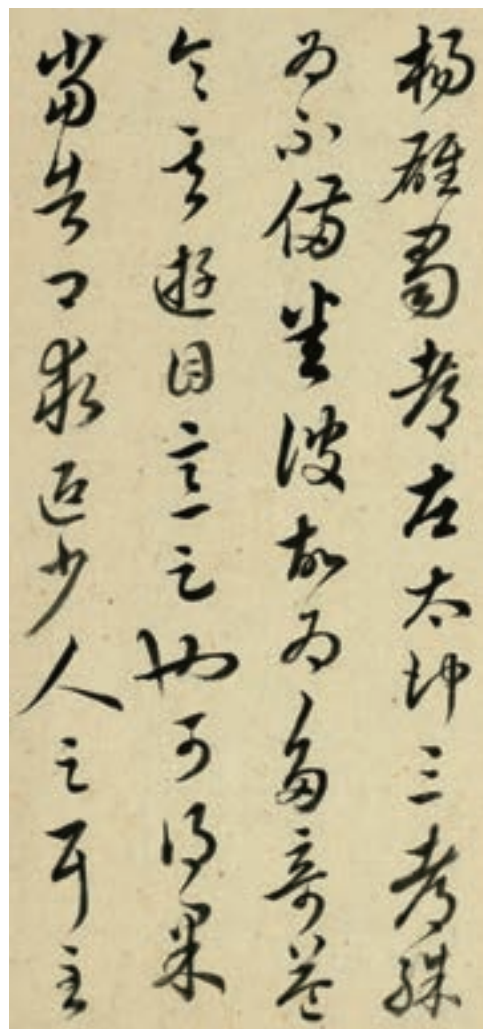 楊雄蜀都左太沖三都殊
為不備悉彼故為多奇益
令其遊目意足也可得果
當告卿求迎少人足耳至